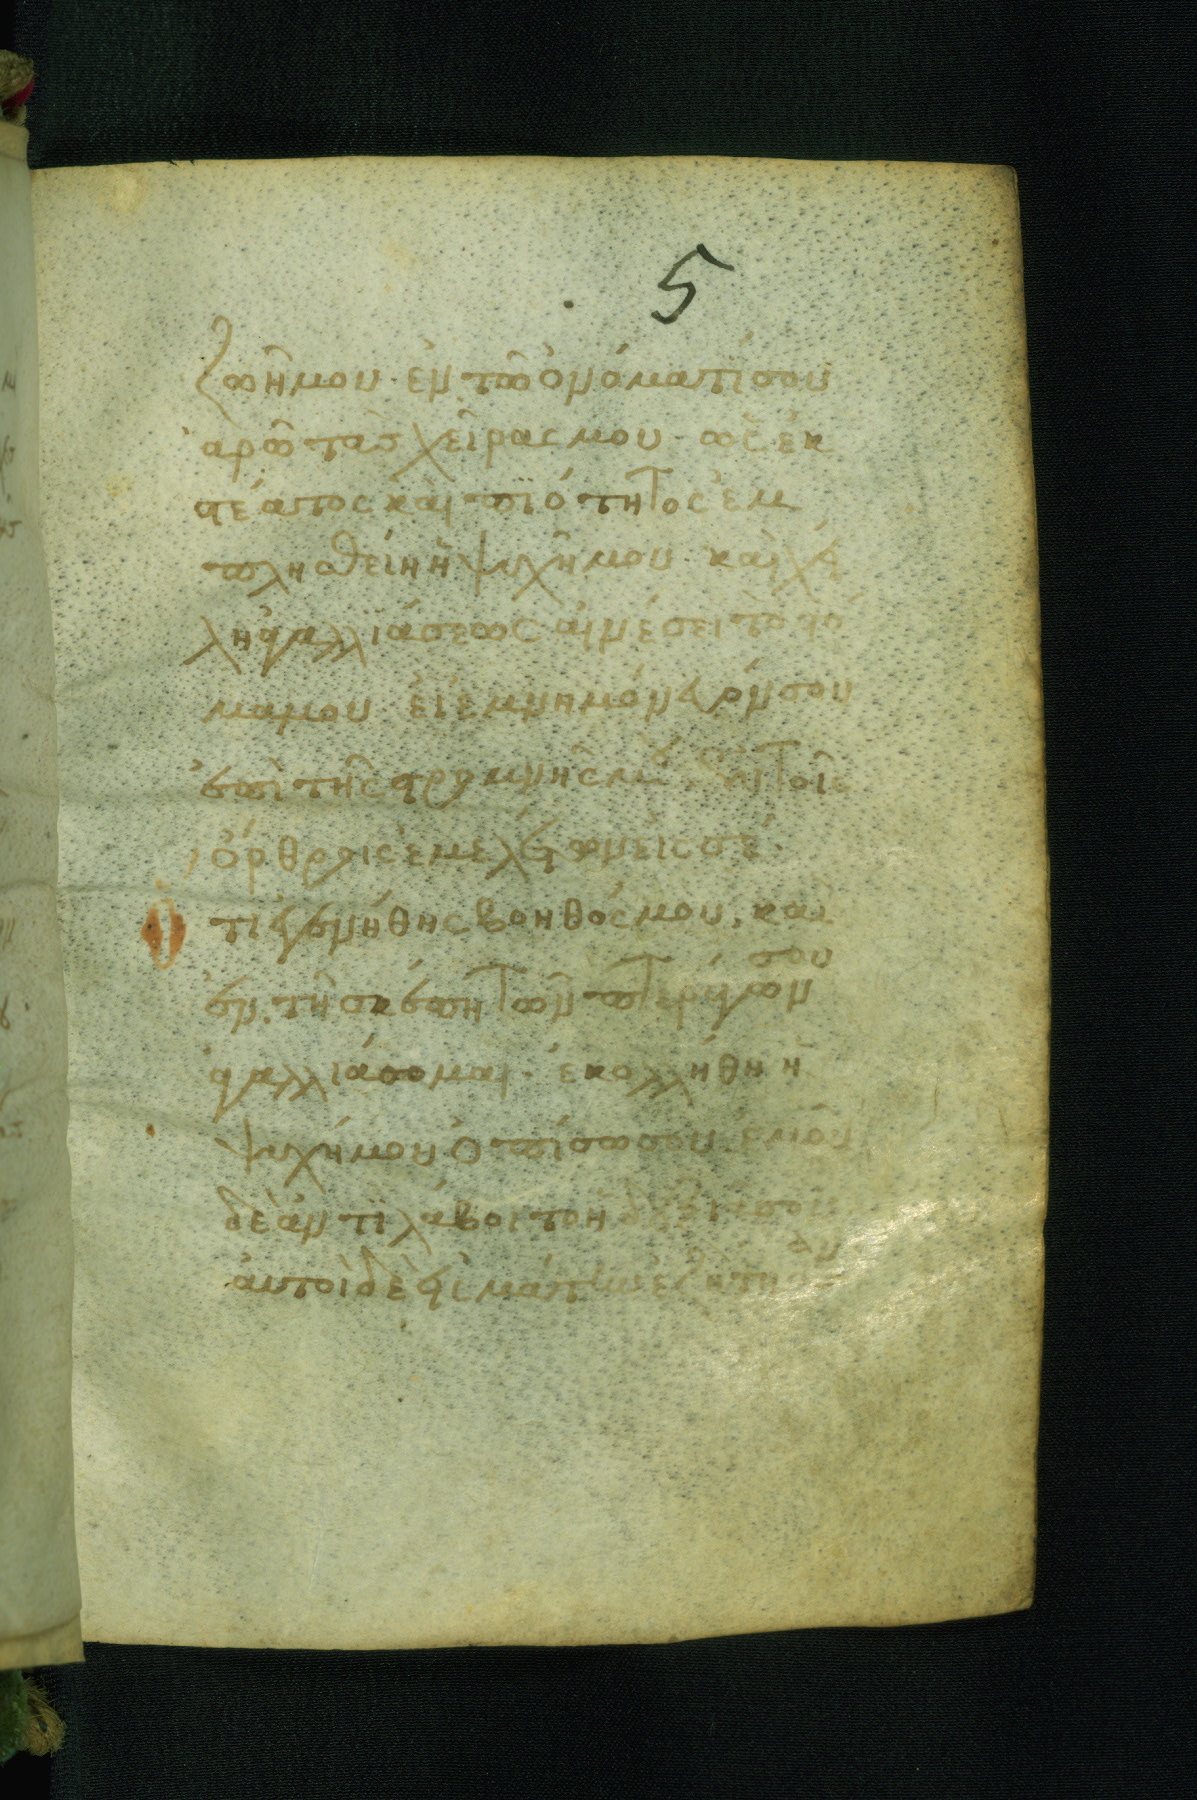 5
ζωῆ μου· ἐν τῶ ὀνόματί σου
ἀρῶ τὰς χεῖρας μου· ὡς ἐκ
στέατος καὶ πϊότητος ἐμ
πλησθείη ἡ ψυχή μου· καὶ χεί
λη ἀγαλλϊάσεως αἰνέσει τὸ στό
μα μου· εἰ ἐμνημόνευόν σου
ἐπὶ τῆς στρωμνῆς μου ἐν τοῖς
ὄρθροις ἐμελέτων εἰς σέ·
ὅτι ἐγενήθης βοηθός μου, καὶ
ἐν τῆ σκέπη τῶν πτερύγων σου
ἀγαλλιάσομαι· ἐκολλήθη ἡ
ψυχή μου ὀπίσω σου· ἐμοῦ
δὲ ἀντϊλάβοιτο ἡ δεξιά σου
αὐτοὶ δὲ εἰς μάτην ἐζήτησαν